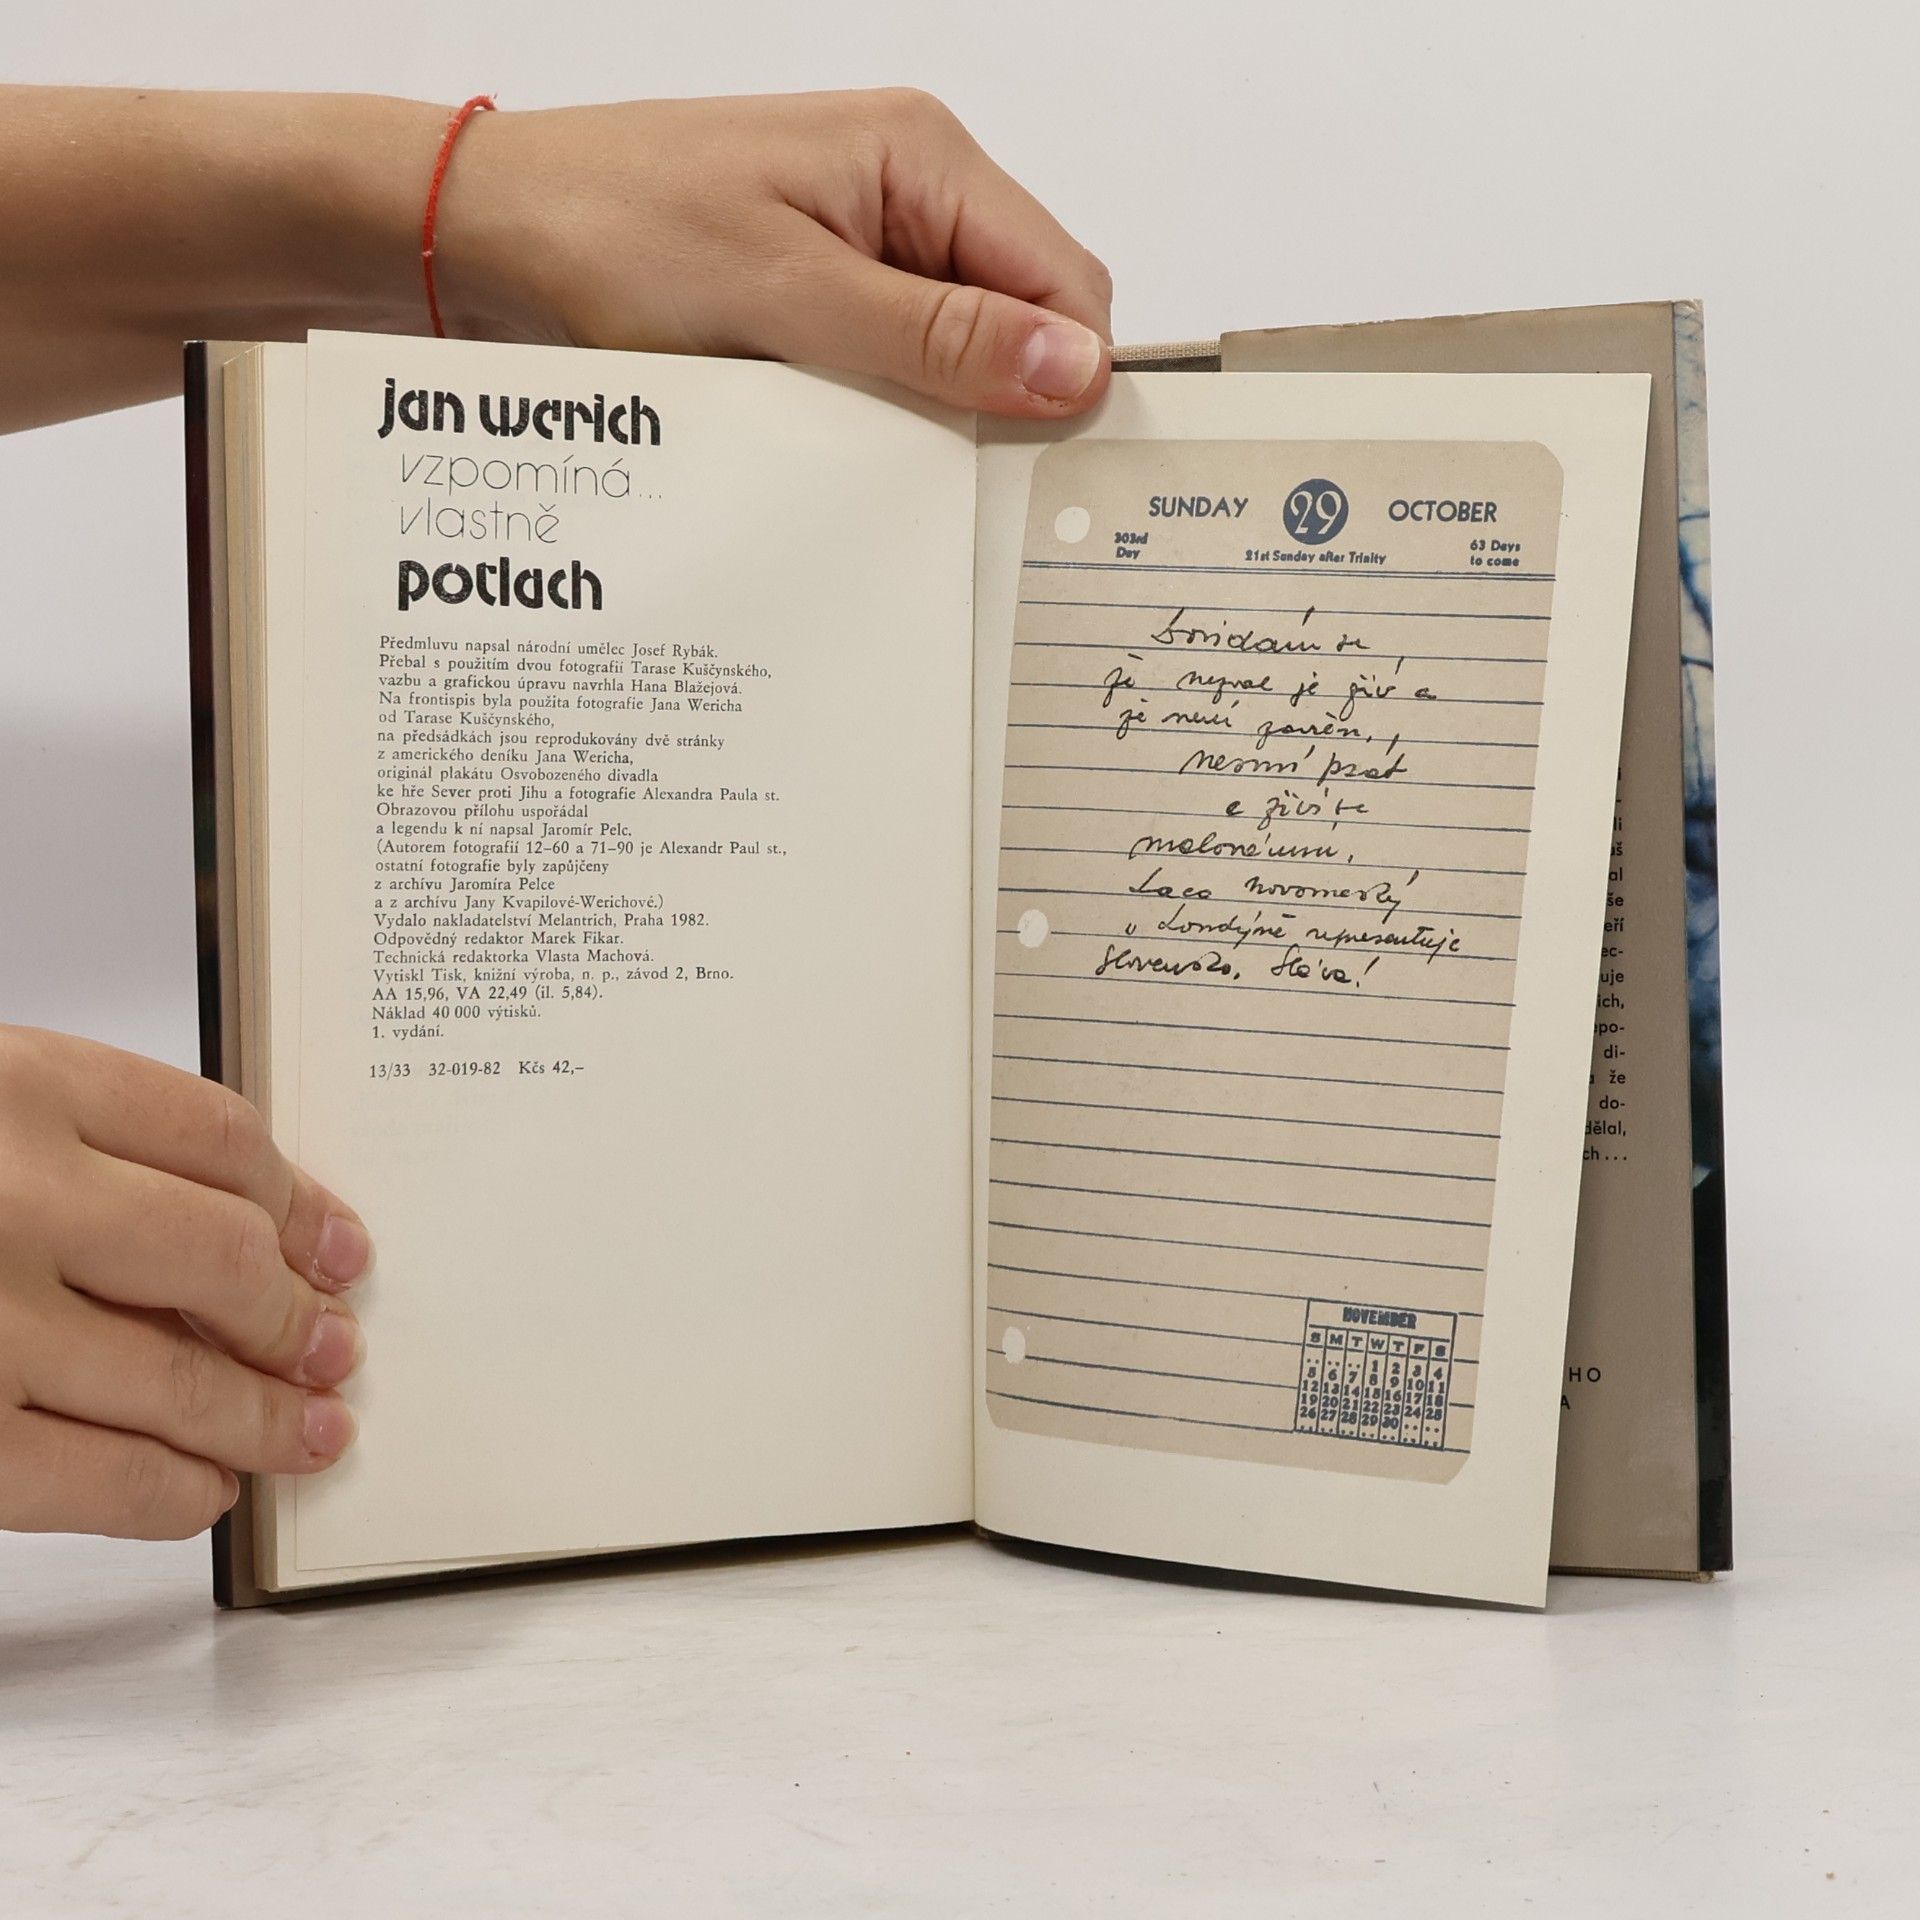 jan werich
vzpomíná...
vlastně
potlach
Předmluvu napsal národní umělec Josef Rybák.
Přebal s použitím dvou fotografií Tarase Kuščynského,
vazbu a grafickou úpravu navrhla Hana Blažejová.
Na frontispis byla použita fotografie Jana Wericha
od Tarase Kuščynského,
na předsádkách jsou reprodukovány dvě stránky
z amerického deníku Jana Wericha,
originál plakátu Osvobozeného divadla
ke hře Sever proti Jihu a fotografie Alexandra Paula st.
Obrazovou přílohu uspořádal
a legendu k ní napsal Jaromír Pelc.
(Autorem fotografií 12–60 a 71–90 je Alexandr Paul st.,
ostatní fotografie byly zapůjčeny
z archívu Jaromíra Pelce
a z archívu Jany Kvapilové-Werichové.)
Vydalo nakladatelství Melantrich, Praha 1982.
Odpovědný redaktor Marek Fikar.
Technická redaktorka Vlasta Machová.
Vytiskl Tisk, knižní výroba, n. p., závod 2, Brno.
AA 15,96, VA 22,49 (il. 5,84).
Náklad 40 000 výtisků.
1. vydání.
13/33 32-019-82 Kčs 42,–
SUNDAY 29 OCTOBER
303rd Day 21st Sunday after Trinity 63 Days to come
se,
že nezval je živ a
že není zavřen,
nesmí psát
a živí se
Laco Novomeský
v Londýně representuje
Slovensko. Sláva!
NOVEMBER
S M T W T F S
.. .. .. 1 2 3 4
5 6 7 8 9 10 11
12 13 14 15 16 17 18
19 20 21 22 23 24 25
26 27 28 29 30 .. ..
al
še
eří
ec-
uje
ich,
epo-
di-
že
do-
dělal,
ch...
HO
A